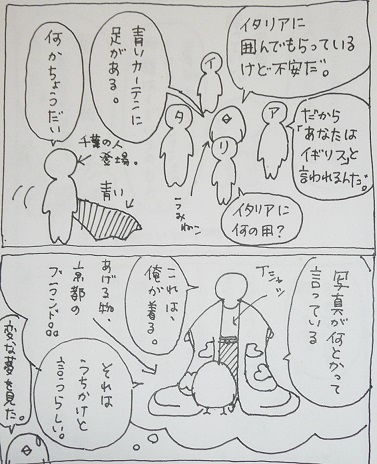 イタリアに
囲んでもらっている
けど不安だ。
イ
タ
リ
ア
だから
「あなたは
イギリス」と
言われるんだ。
イタリアに
何の用?
うみねこ
青いカーテンに
足がある。
何かちょうだい
千葉の人
登場。
青い
写真が何とかって
言っている
Tシャツ
これは、
俺が着る。
あげる物、
京都の
ブランド。
それは
うちかけと
言うらしい。
変な夢を見た。